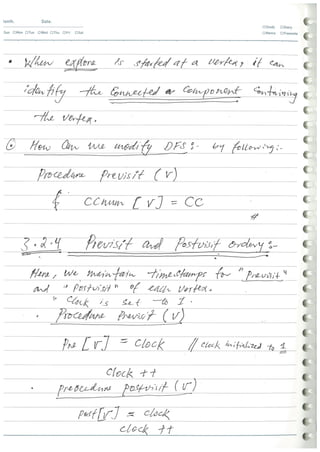 • When explore is started at a vertex, it can
identify the Connected Component Containing
the vertex.
How Can we modify DFS:- by following:-
Procedure Previsit (v)
CCnum [v] = CC
3.2.4 Previsit and Postvisit ordery:-
Here, we maintain timestamps for "Previsit"
and "Postvisit" of each vertex.
" Clock is set to 1.
• Procedure Previsit (v)
Pre [v] = Clock // clock initialized to 1
Clock ++
• procedure postvisit (v)
post[v] = clock
clock ++